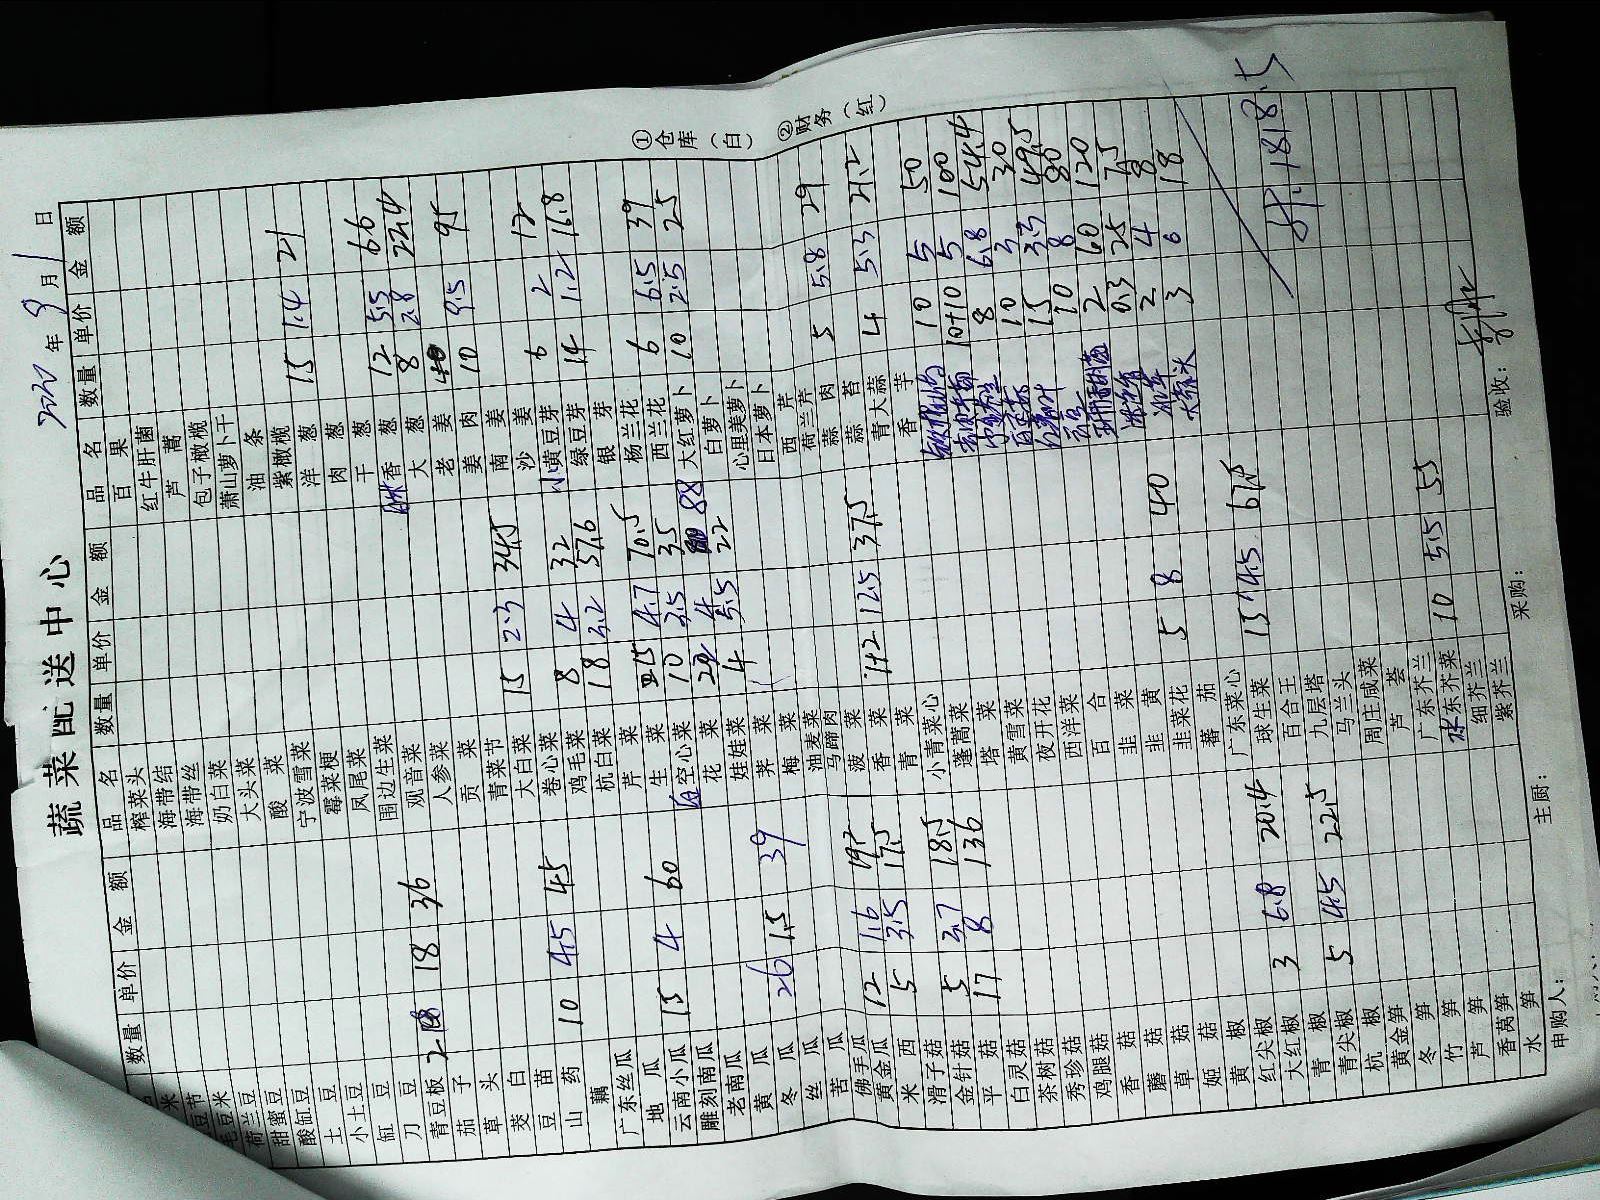 蔬菜配送中心
2020 年 9 月 1 日
品名 数量 单价 金额 品名 数量 单价 金额 品名 数量 单价 金额
毛豆米
荷兰豆
甜蜜豆
酸缸豆
土豆
小土豆
缸豆
刀豆
青豆板 2 18 36
茄子
草头
茭白
豆苗
山药 10 4.5 45
藕
广东丝瓜
地瓜
云南小瓜 15 4 60
雕刻南瓜
老南瓜
黄瓜
冬瓜 26 1.5 39
丝瓜
苦瓜
佛手瓜
黄金瓜 12 1.6 19.2
米西 5 3.5 17.5
滑子菇
金针菇 5 3.7 18.5
平菇 17 8 136
白灵菇
茶树菇
秀珍菇
鸡腿菇
香菇
蘑菇
草菇
姬菇
黄椒
红尖椒
大红椒 3 6.8 20.4
青椒
青尖椒 5 4.5 22.5
杭椒
黄金笋
冬笋
竹笋
芦笋
香莴笋
水笋
榨菜头
海带结
海带丝
奶白菜
大头菜
酸菜
宁波雪菜
霉菜梗
凤尾菜
围边生菜
观音菜
人参菜
贡菜
青菜节
大白菜 15 2.3 34.5
卷心菜
鸡毛菜 8 4 32
杭白菜 18 3.2 57.6
芹菜
生菜 15 4.7 70.5
空心菜 10 3.5 35
花菜 22 4 88
娃娃菜 4 5.5 22
荠菜
梅菜
油麦菜
马蹄肉
菠菜
香菜 1+2 12.5 37.5
青菜
小青菜心
蓬蒿菜
塔菜
黄雪菜
夜开花
西洋菜
百合
韭菜
韭黄
韭菜花 5 8 40
蕃茄
广东菜心
球生菜 15 4.5 67.5
百合王
九层塔
马兰头
周庄咸菜
芦荟
广东芥兰
水东芥菜 10 5.5 55
细芥兰
紫芥兰
百果
红牛肝菌
芦蒿
包子橄榄
萧山萝卜干
油条
紫橄榄
洋葱 15 1.4 21
肉葱
干葱
香葱 12 5.5 66
大葱 8 2.8 22.4
老姜
姜肉 10 9.5 95
南姜
沙姜
小黄豆芽 6 2 12
绿豆芽 14 1.2 16.8
银芽
杨兰花
西兰花 6 6.5 39
大红萝卜 10 2.5 25
白萝卜
心里美萝卜
日本萝卜
西芹
荷兰芹
蒜肉 5 5.8 29
蒜苔
青大蒜 4 5.3 21.2
香芋
10 5 50
10+10 5 100
8 6.8 54.4
10 3 30
15 3.3 49.5
10 8 80
2 60 120
0.3 25 7.5
2 4 8
大蒜头 3 6 18
1818.5
①仓库（白）
②财务（红）
申购人：
主厨：
采购：
验收：